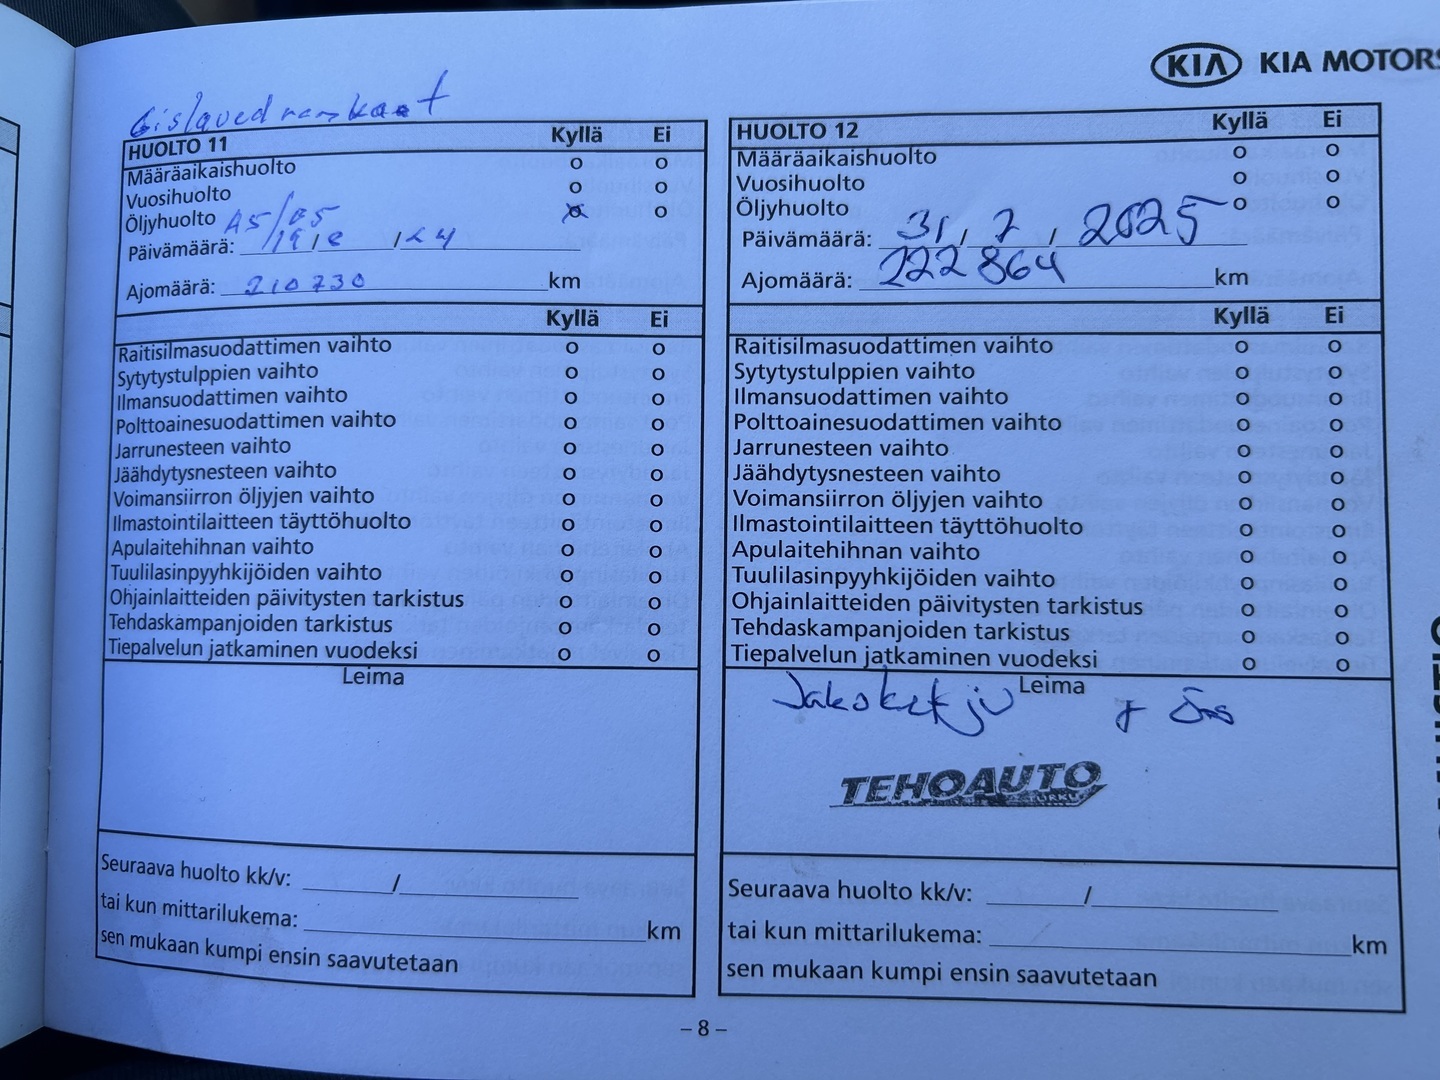 KIA KIA MOTORS
Gislaved renkaat
HUOLTO 11 Kyllä Ei
Määräaikaishuolto o o
Vuosihuolto o o
Öljyhuolto A5/B5 x o
Päivämäärä: 19/6/24
Ajomäärä: 210730 km
Kyllä Ei
Raitisilmasuodattimen vaihto o o
Sytytystulppien vaihto o o
Ilmansuodattimen vaihto o o
Polttoainesuodattimen vaihto o o
Jarrunesteen vaihto o o
Jäähdytysnesteen vaihto o o
Voimansiirron öljyjen vaihto o o
Ilmastointilaitteen täyttöhuolto o o
Apulaitehihnan vaihto o o
Tuulilasinpyyhkijöiden vaihto o o
Ohjainlaitteiden päivitysten tarkistus o o
Tehdaskampanjoiden tarkistus o o
Tiepalvelun jatkaminen vuodeksi o o
Leima
Seuraava huolto kk/v: /
tai kun mittarilukema: km
sen mukaan kumpi ensin saavutetaan
HUOLTO 12 Kyllä Ei
Määräaikaishuolto o o
Vuosihuolto o o
Öljyhuolto o o
Päivämäärä: 31 / 7 / 2025
Ajomäärä: 222864 km
Kyllä Ei
Raitisilmasuodattimen vaihto o o
Sytytystulppien vaihto o o
Ilmansuodattimen vaihto o o
Polttoainesuodattimen vaihto o o
Jarrunesteen vaihto o o
Jäähdytysnesteen vaihto o o
Voimansiirron öljyjen vaihto o o
Ilmastointilaitteen täyttöhuolto o o
Apulaitehihnan vaihto o o
Tuulilasinpyyhkijöiden vaihto o o
Ohjainlaitteiden päivitysten tarkistus o o
Tehdaskampanjoiden tarkistus o o
Tiepalvelun jatkaminen vuodeksi o o
Leima
Jakoketju
TEHOAUTO
Seuraava huolto kk/v: /
tai kun mittarilukema: km
sen mukaan kumpi ensin saavutetaan
– 8 –